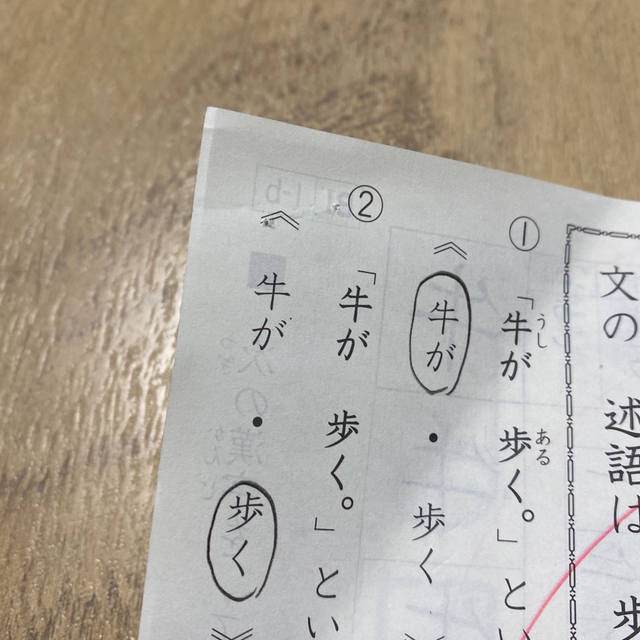 文の 述語は 歩
①「牛が 歩く。」と
うし
ある
《 牛が ・ 歩く 》
②「牛が 歩く。」とい
《 牛が ・ 歩く 》